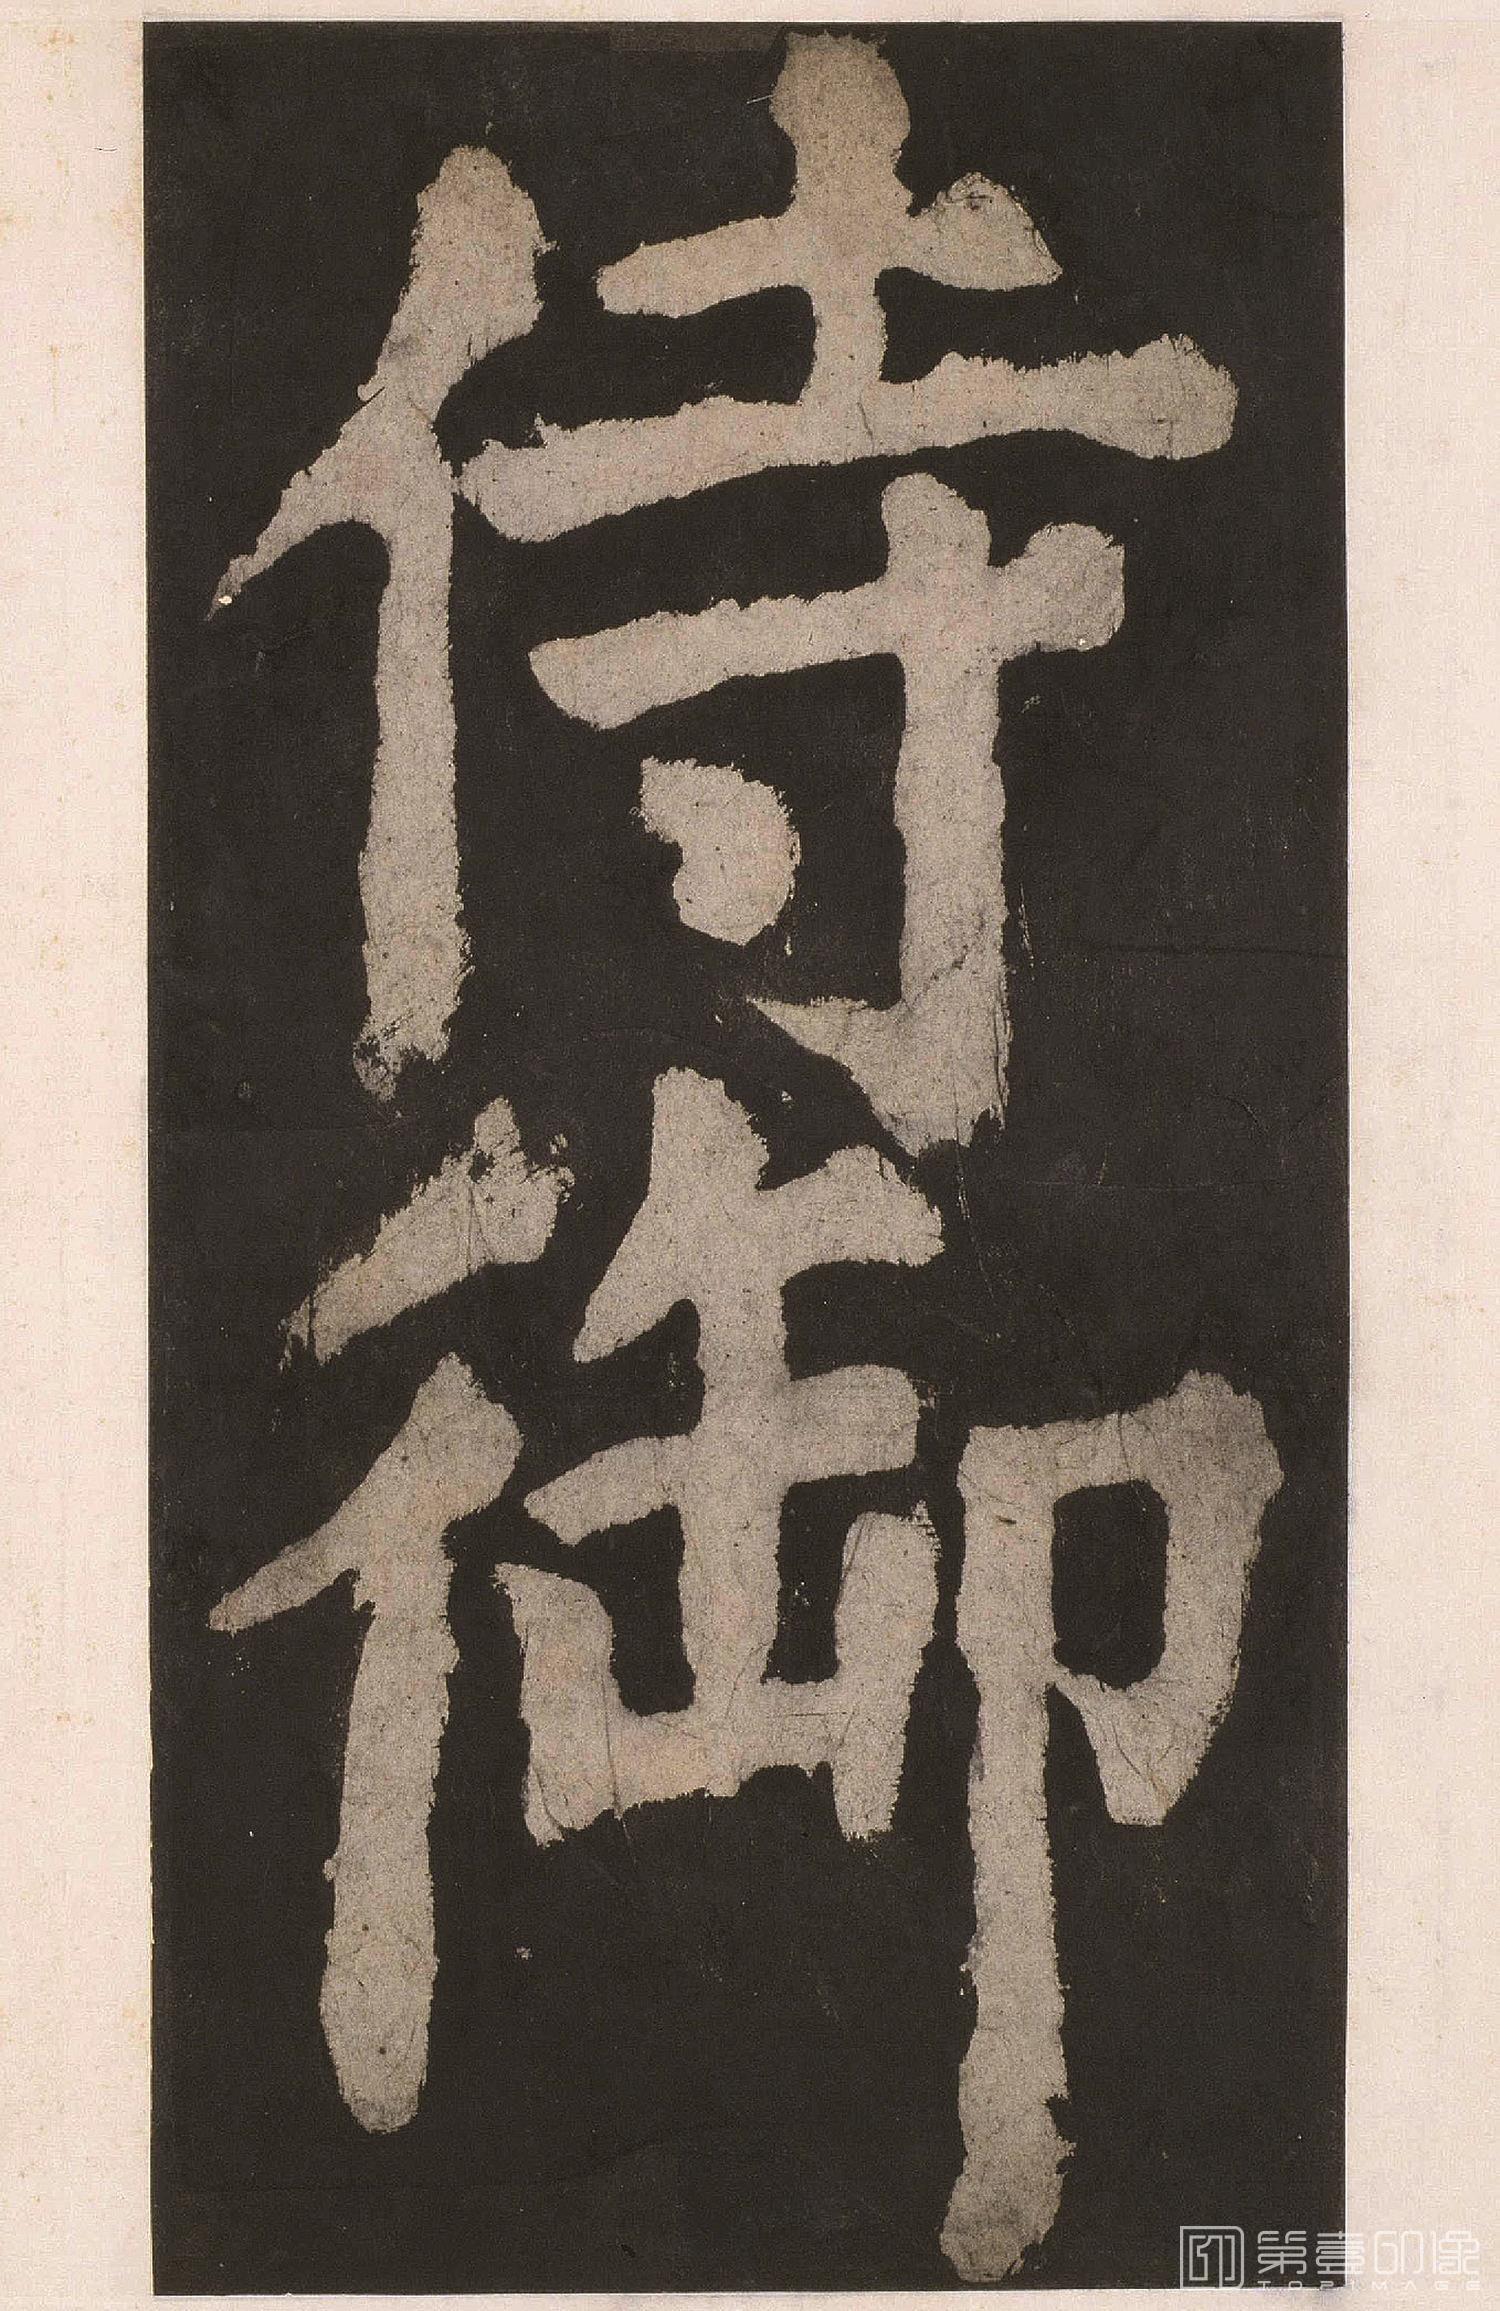 侍御
第壹印像
TOPIMAGE